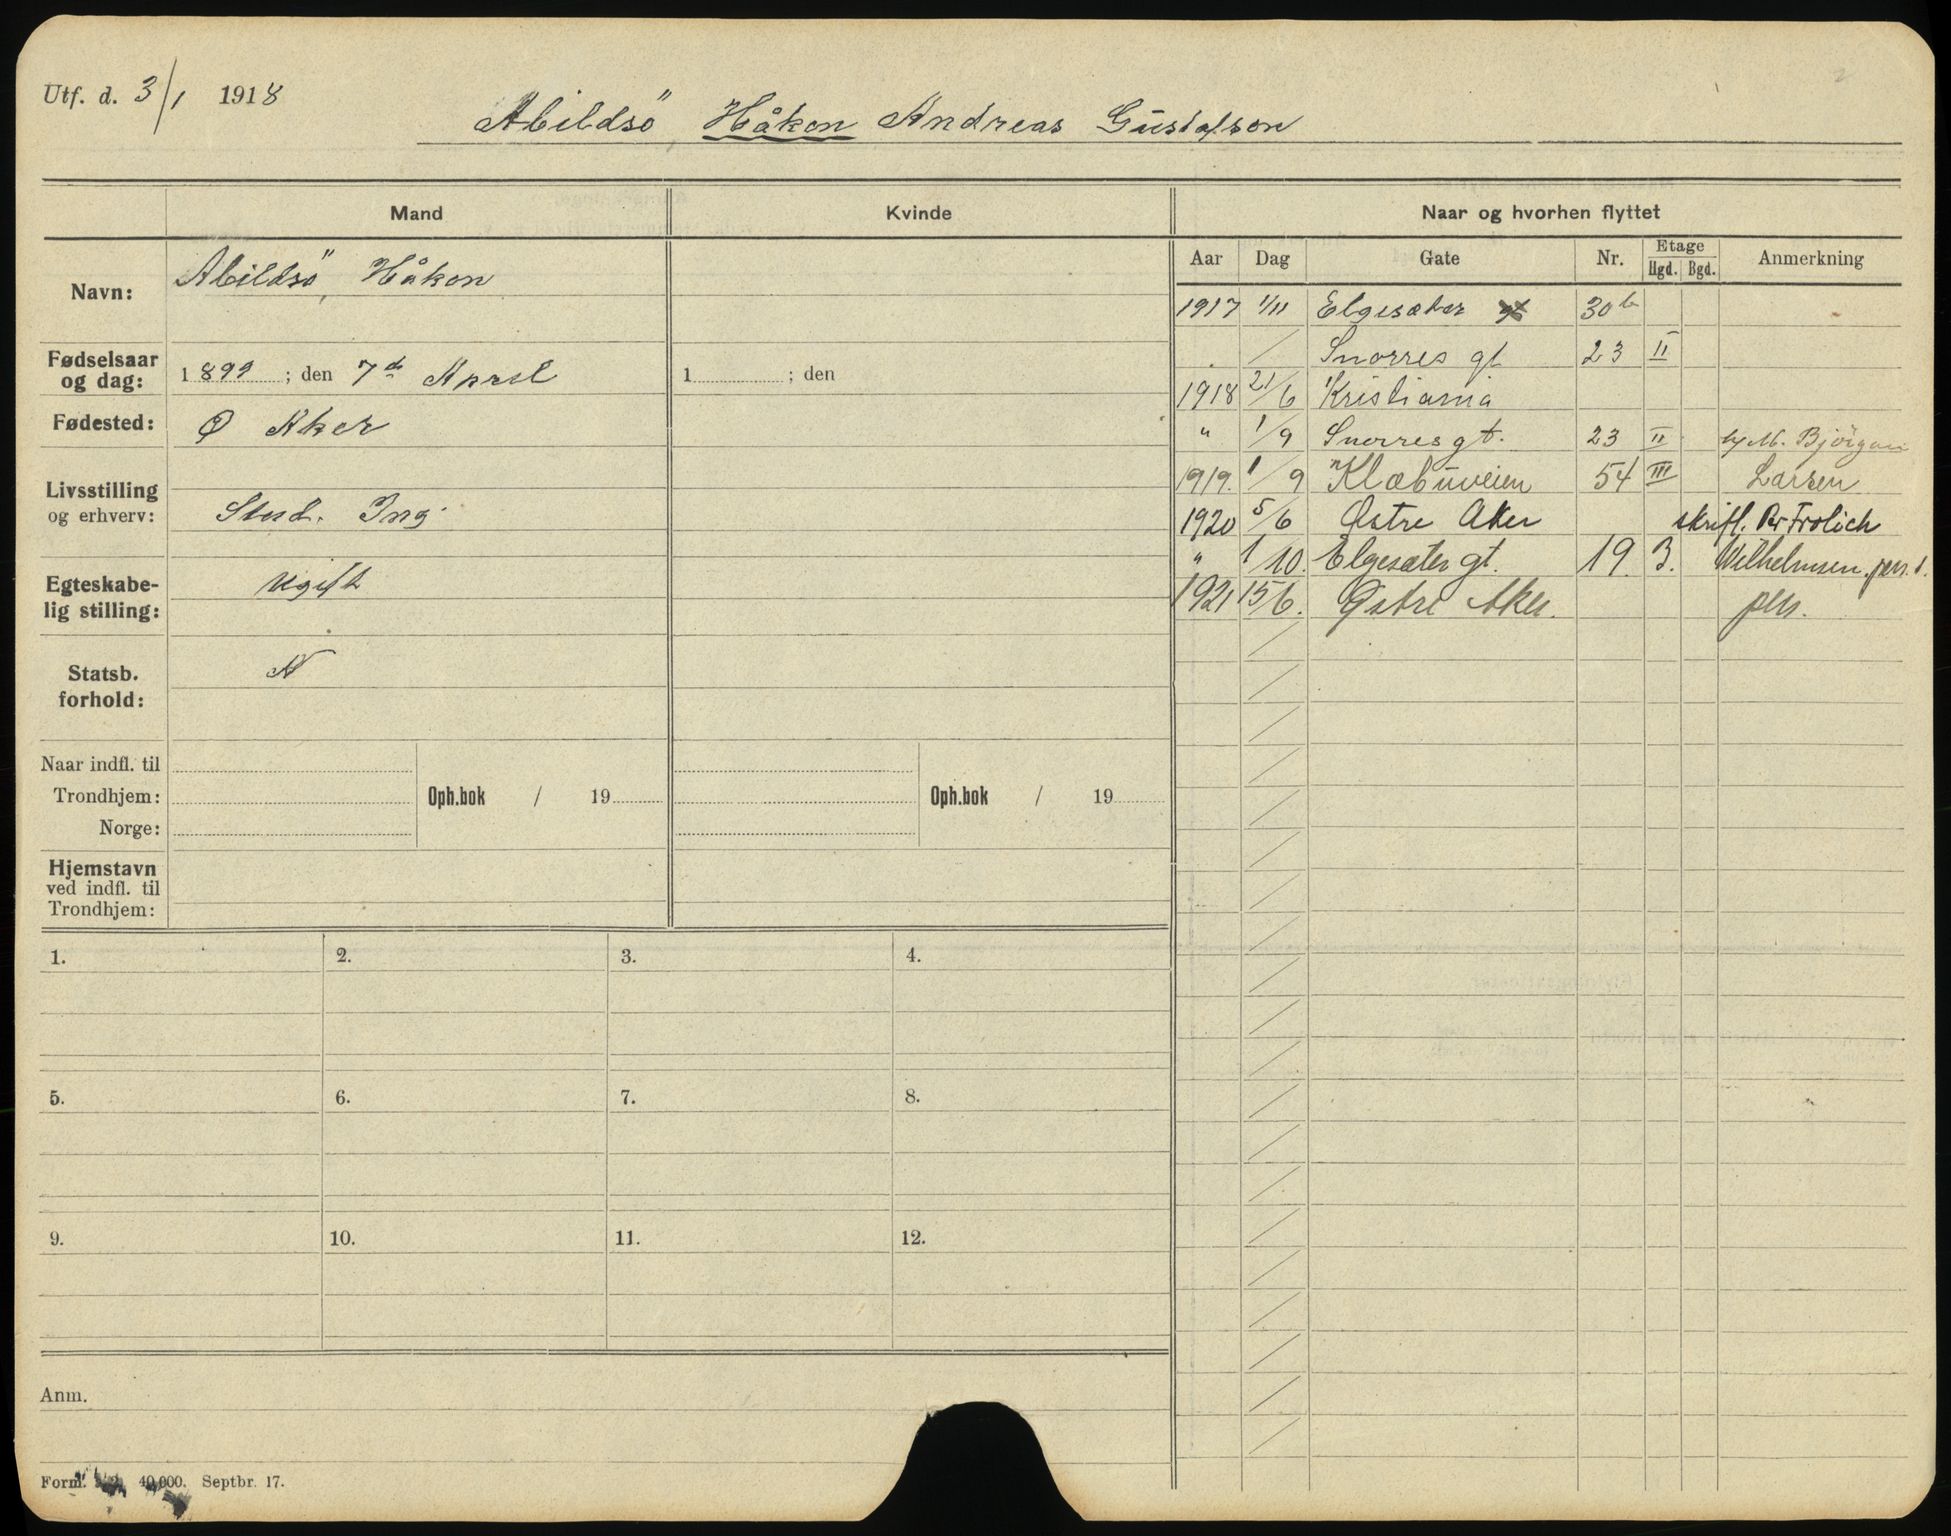 Utf. d. 3/1 1918
Abildsö, Håkon Andreas Gustafson
Mand Kvinde Naar og hvorhen flyttet
Aar Dag Gate Nr. Etage Hgd. Bgd. Anmerkning
Navn: Abildsö, Håkon
Fødselsaar og dag: 1899 ; den 7de April 1 ; den
Fødested: Ø Aker
Livsstilling og erhverv: Stud. Ing.
Egteskabe-
lig stilling: Ugift
Statsb. forhold: N
Naar indfl. til
Trondhjem: Oph.bok / 19 Oph.bok / 19
Norge:
Hjemstavn
ved indfl. til
Trondhjem:
1917 1/11 Elgesæter 30b
/ Snorres gt 23 II
1918 21/6 Kristiania
" 1/9 Snorres gt. 23 II M. Bjørgan
1919. 1/9 Klæbuveien 54 III Larsen
1920 5/6 Østre Aker skrifl. Per Frolich
" 1/10. Elgesæter gt. 19. 3. Wilhelmsen. pers.
1921 15/6. Østre Aker. pers.
1. 2. 3. 4.
5. 6. 7. 8.
9. 10. 11. 12.
Anm.
Form. 40,000. Septbr. 17.